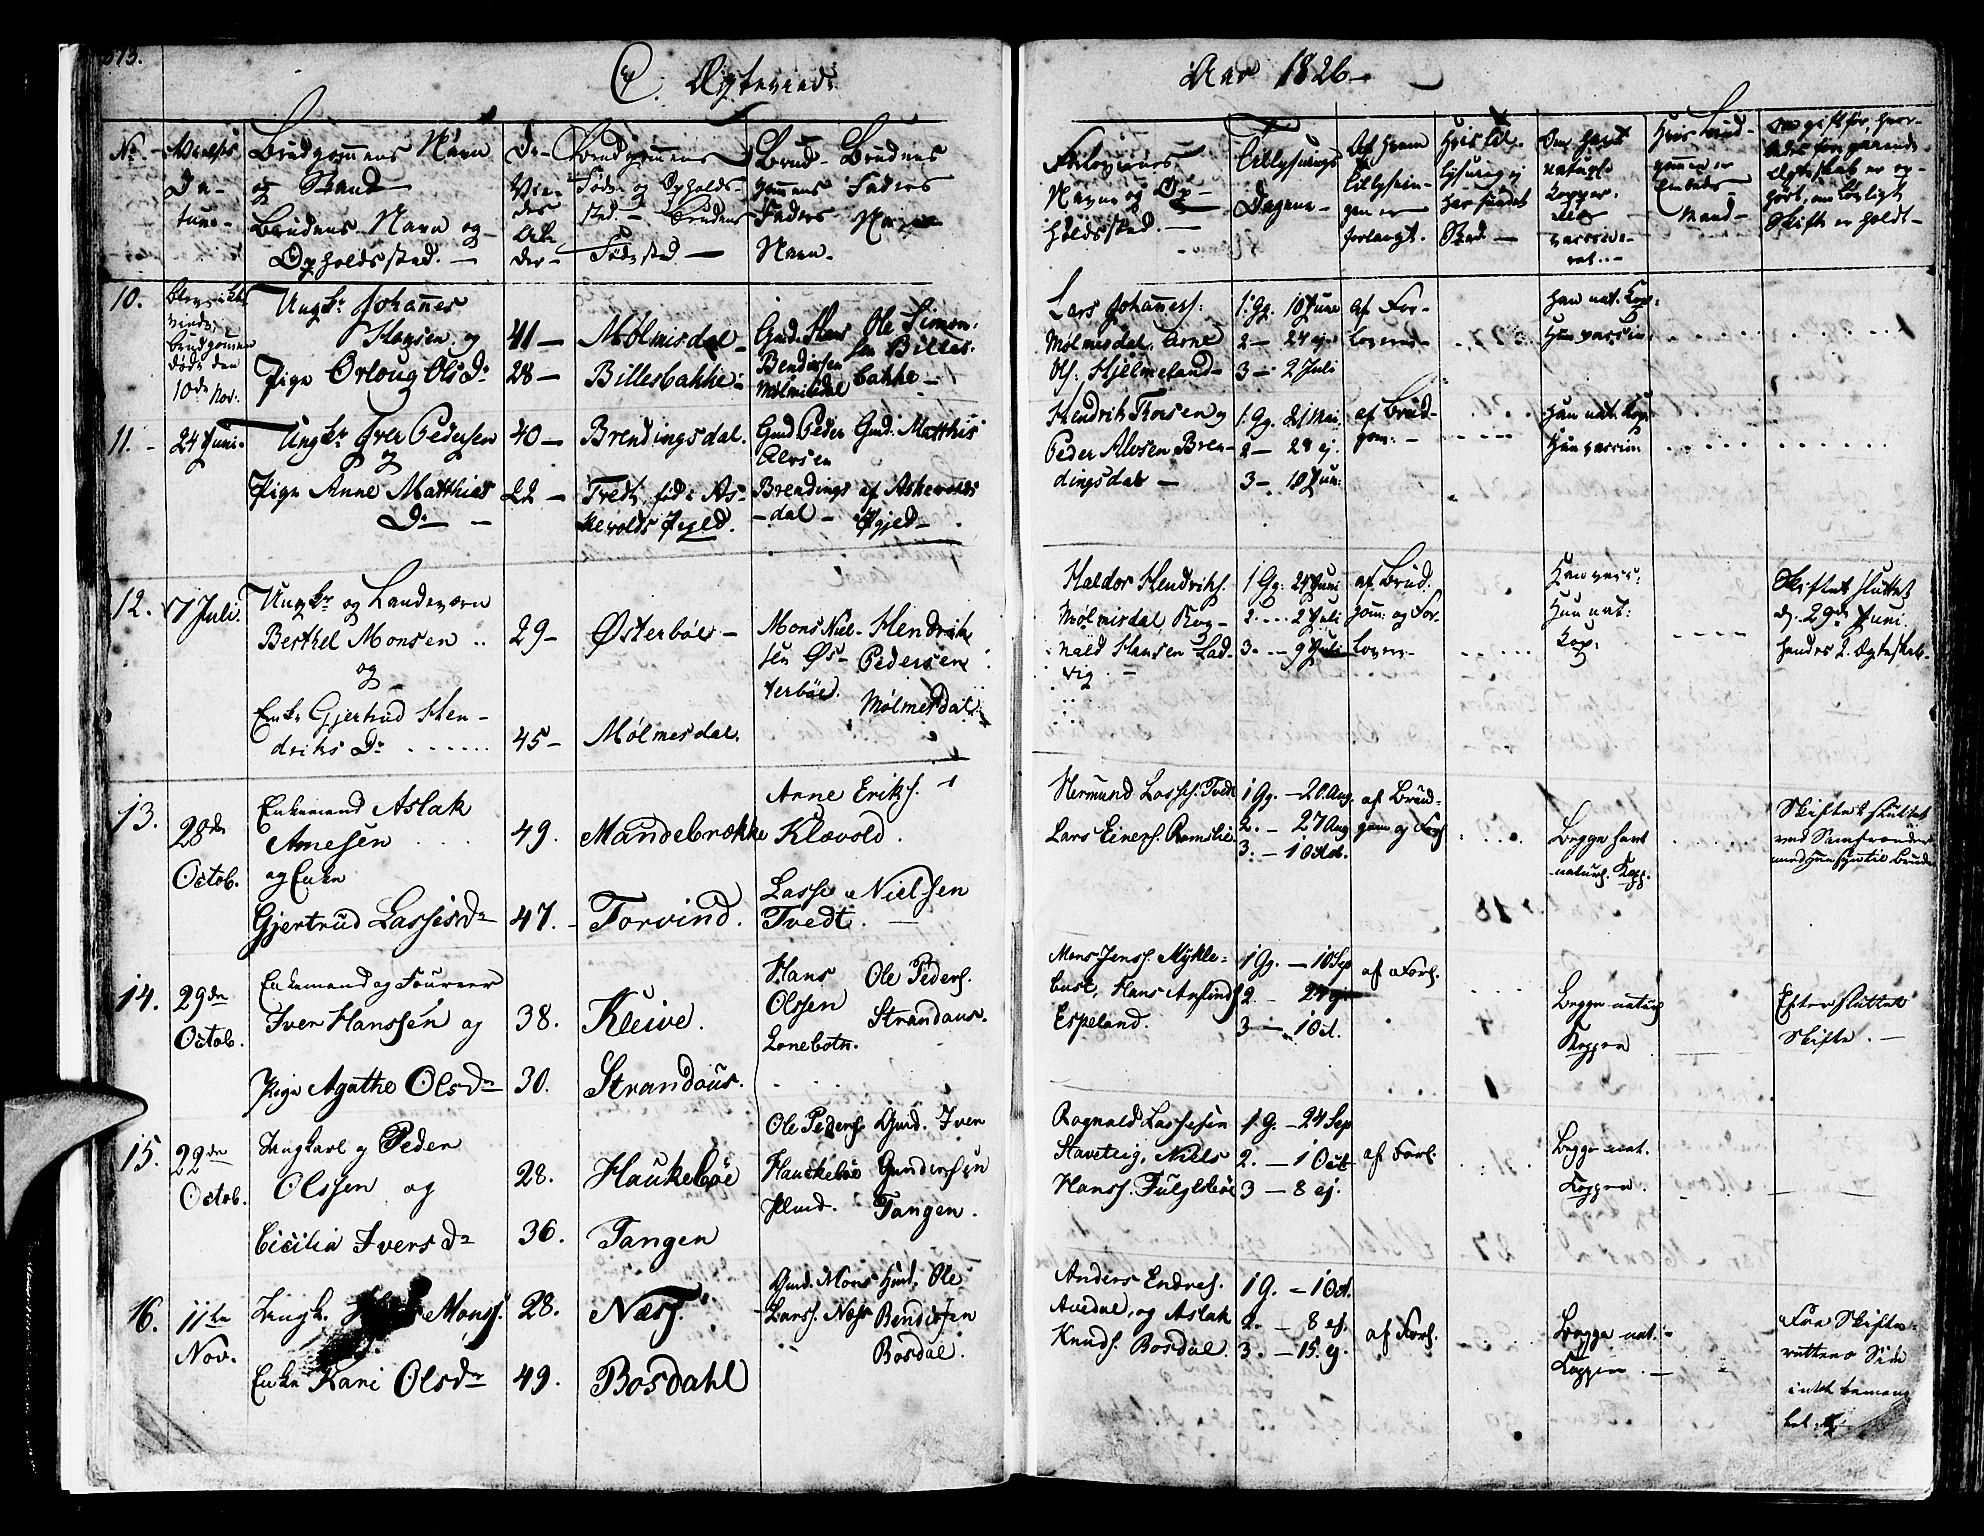 373.
C. Ægteviede
Aar 1826
No.
Vielses
Da-
tum
Brudgommens Navn
og Stand
Brudens Navn og
Opholdssted.
De-
Vie-
des
Al-
der
Brudgommens
Føde- og Opholds-
sted. Brudens
Fødested
Brud-
gommens
Faders
Navn
Brudens
Faders
Navn
Forlovernes
Navne og Op-
holdssted.
Tillysnings
Dagene
Af hvem
tillysnin-
gen er
forlangt.
Hvis til-
lysning ej
har fundet
Sted.
Om havt
naturl.
Kopper,
eller
vaccine-
ret.
Hvis Brud-
gommen er
Embeds-
Mand
Om gift før, hvor-
ledes foregaaende
Ægteskab er op-
hört, om lovligt
Skifte er holdt
10.
Blev ikke
viede,
brudgomen
døde den
10de Nov.
Ungk. Johannes
Hansen og
Pige Orloug Olsdr
41
28
Mølmisdal
Billesbakke
Gmd. Hans
Bendixsen
Mølmisdal
Ole Simon-
sen Billes-
bakke
Lars Johanness.
Mølmisdal, Arne
Ols. Hjelmeland
1. Gg. 18 Juni
2 - 24 ej.
3 - 2 Juli
af For-
loverne
Han nat. Kop.
Hun vaccin.
11.
24 Juni
Ungk. Iver Pedersen
og
Pige Anne Matthias
Dr
40
22
Brendingsdal.
Tvedt, fød i As-
kevolds Pgjeld.
Gmd Peder
Alvsen
Brendings
-dal
Gmd. Matthis
af Askevolds
Pgjed
Hendrik Thorsen og
Peder Alvsen Bren-
dingsdal
1. Gg. 21 Mai
2 - 28 ej.
3 - 18 Jun.
af Brud-
gom.
Han nat. Kop.
Hun vaccin
12.
7 Juli.
Ungk. og Landeværn
Berthel Monsen
og
Enke Gjertrud Hen-
driks Dr
29
45
Østerbøe
Mølmesdal.
Mons Niel-
sen Øs-
terbøe.
Hendrik
Pedersen
Mølmesdal
Haldor Hendriks.
Mølmisdal, Rog-
nald Hansen Lad-
vig.
1 Gg. 24 Juni
2 - 2 Juli
3 - 9 Juli
af Brud-
gom. og For-
lover
Han vacc.
Hun nat.
Kop.
Skiftet sluttet
d. 29de Juni.
Hendes 2. Ægteskab.
13.
28de
Octob.
Enkemand Aslak
Arnesen
og Enke
Gjertrud Lassesdr
49.
47.
Mandebrække
Torvind.
Arne Eriks.
Klævold.
Lasse Nielsen
Tvedt.
Hermund Lasses. Tvedt
Lars Einers. Ramslie
1 Gg. - 20. Aug.
2. - 27 Aug
3. - 1 Octob.
af Brud-
gom og Forl.
Begge havt
naturl. Kopp.
Skiftet sluttet
14.
29de
Octob.
Enkemand og Foureer
Iver Hanssen og
Pige Agathe Olsdr
38.
30.
Kleive.
Strandous.
Hans
Olssen
Lonebotn.
Ole Peders.
Strandous.
Mons Jens. Mykle-
bust, Hans Anfinds.
Espeland.
1 Gg. - 10 Sep
2 -
3 - 1 Oct.
af Forl.
Begge naturl
Koppen
Efter sluttet
Skifte.
15.
22de
Octob.
Ungkarl og Peder
Olssen og
Cicilia Ivers dr
28.
36.
Haukebøe
Tangen
Ole Peders.
Haukebøe
Gmd. Iver
Gundersen
Tangen.
Rognald Lassesen
Staveteig, Niels
Hanss. Fulglebøe
1 G. - 24 Sep
2. - 1 Oct
3 - 8 ej.
af Forl.
Begge nat.
Koppen.
16.
11te
Nov.
Ungk. Monss.
Enke Kari Olsdr
28.
49.
Næss.
Bosdahl
Gmd. Mons
Larss. Næss
Huusm. Ole
Bendixsen
Bosdal.
Anders Endres.
Avedal, og Aslak
Knuds. Bosdal.
1 G. - 1 Oct.
2. - 8 ej.
3. - 15. ej.
af Forl.
Begge nat.
Koppen.
Fra Skifte-
rettens Side
intet bemær-
ket.